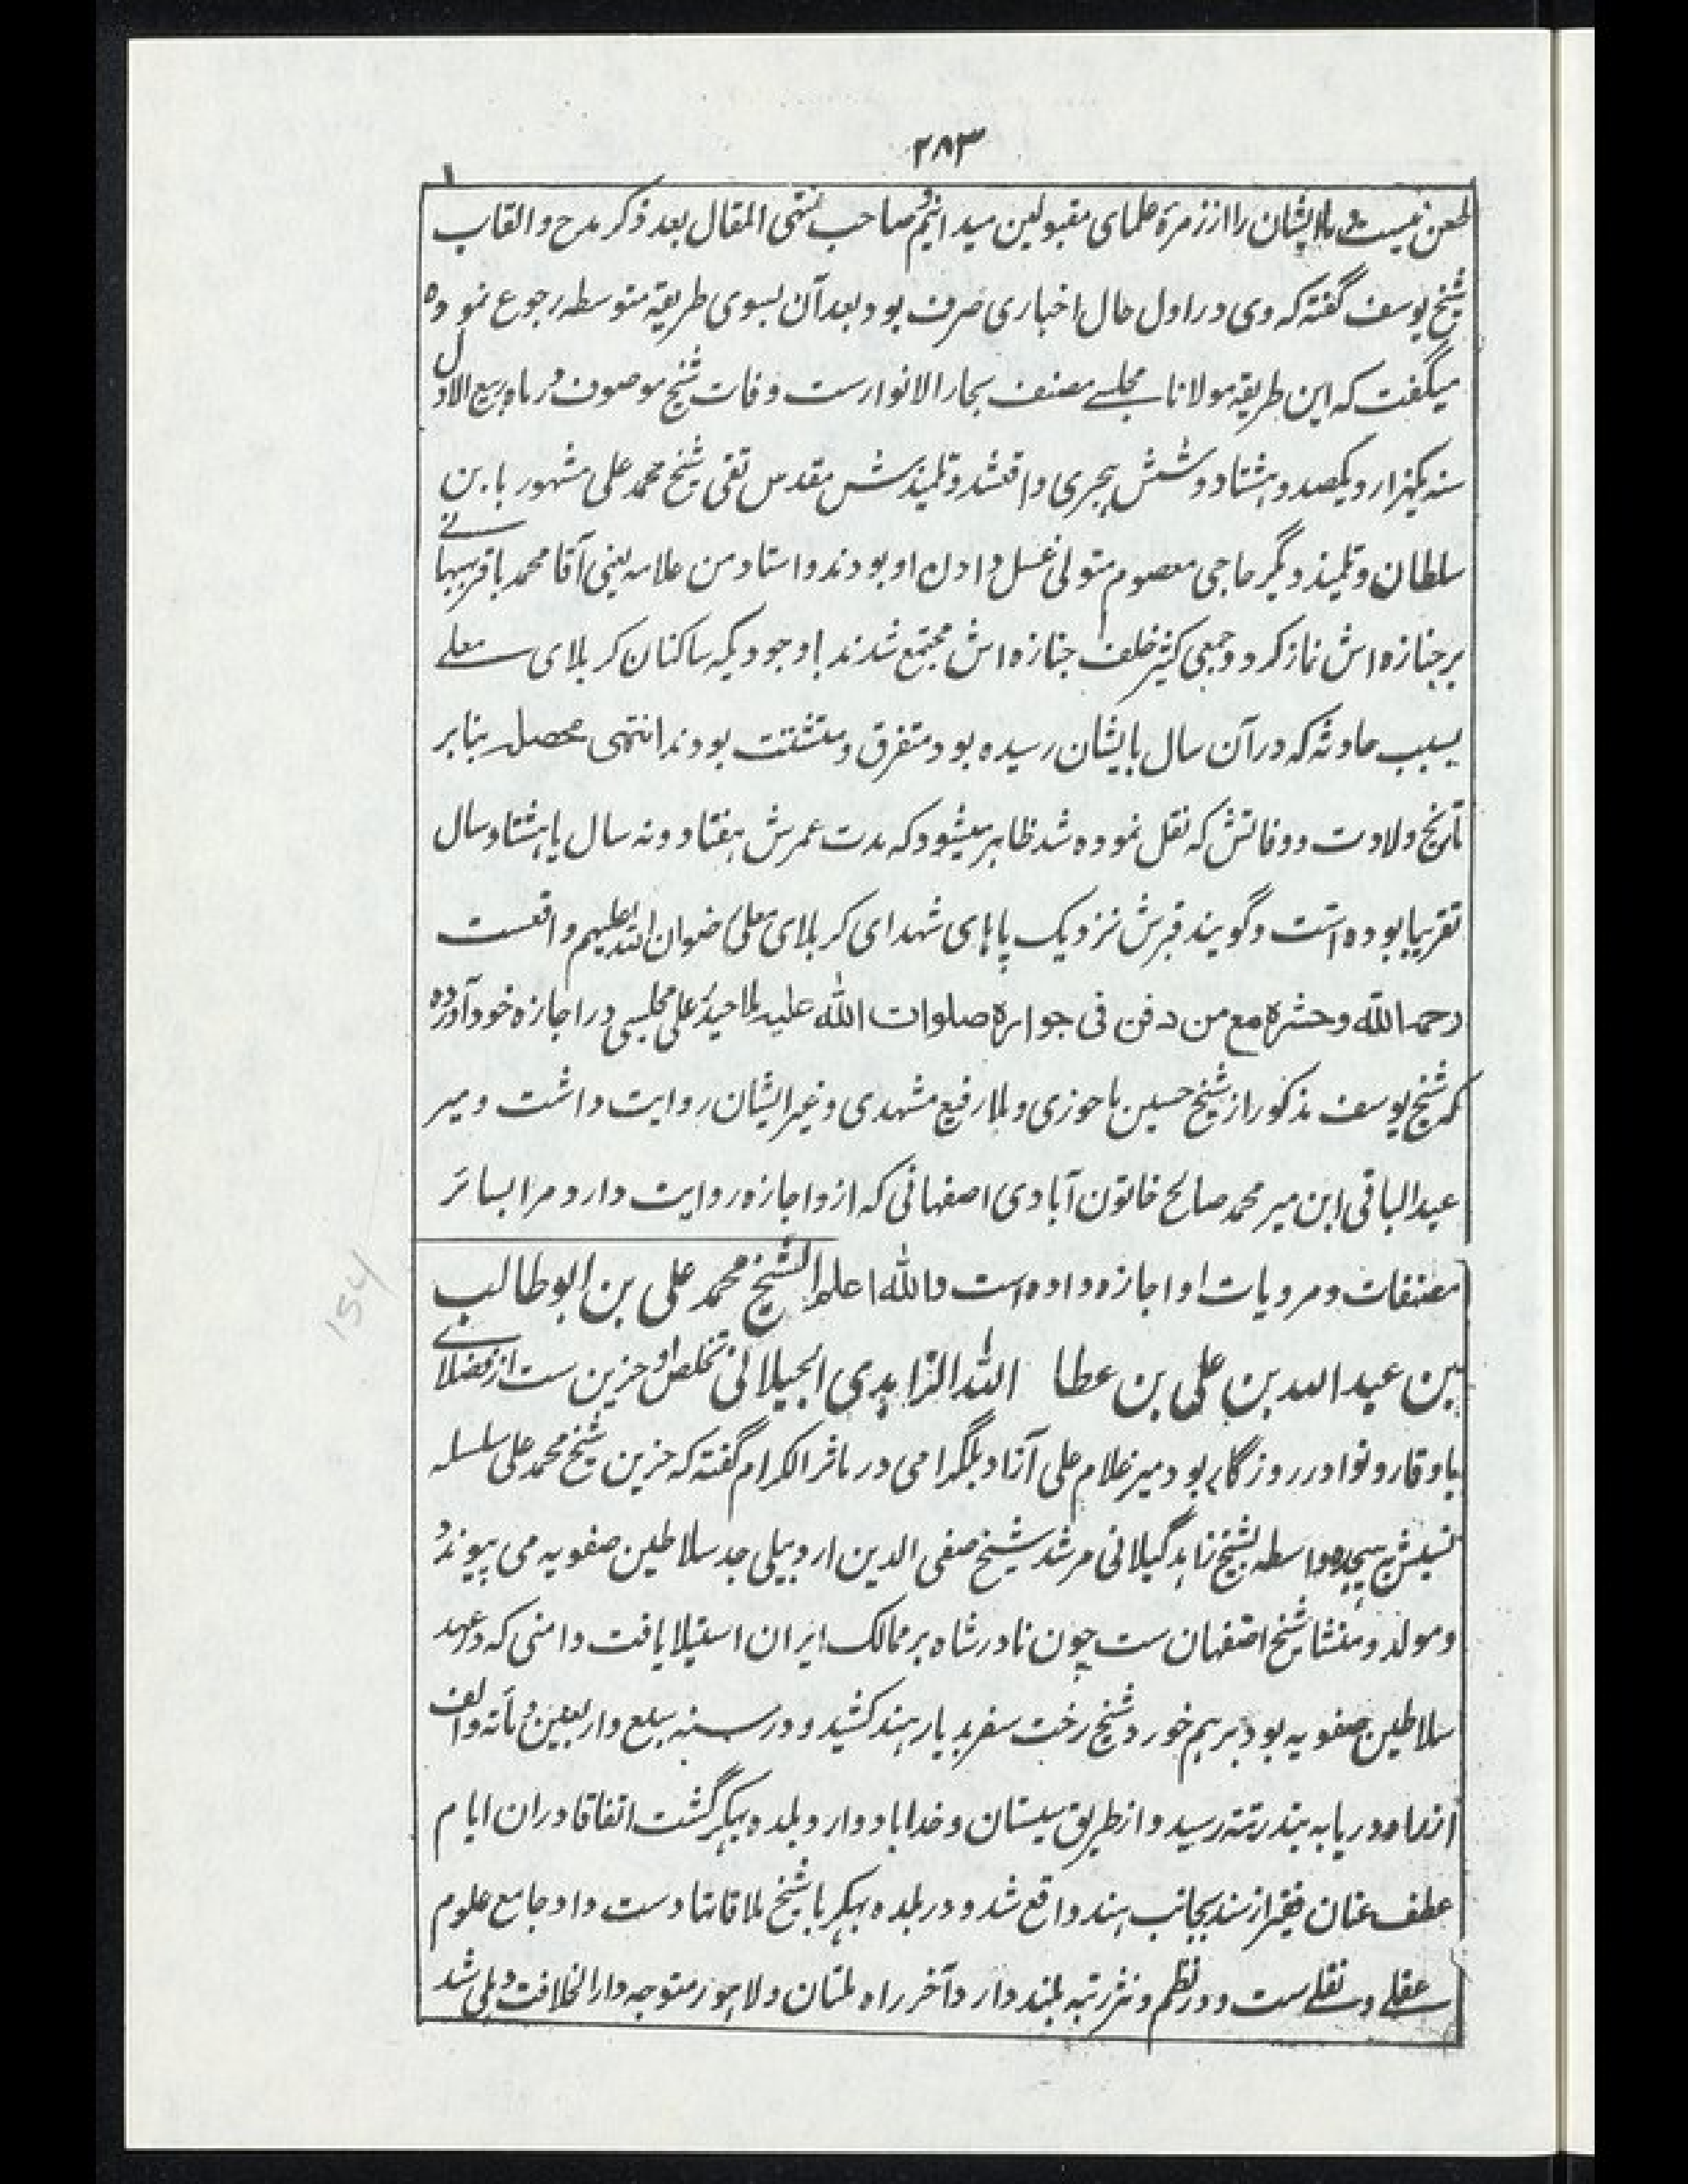 ۲۸۳
طعن نیست و ما ایشان را از زمرهٔ علمای مقبولین میدانیم و صاحب منتهی المقال بعد ذکر مدح و القاب
شیخ یوسف گفته که وی در اول حال اخباری صرف بود بعد آن بسوی طریقهٔ متوسطه رجوع نموده
میگفت که این طریقهٔ مولانا مجلسے مصنف بحار الانوارست وفات شیخ موصوف در ماه ربیع الاول
سنه یکهزار و یکصد و هشتاد و شش هجری واقع شد و تلمیذش مقدس تقی شیخ محمد علی مشهور بابن
سلطان و تلمیذ دیگر حاجی معصوم متولی غسل دادن او بودند و استاد من علامه یعنی آقا محمد باقر بهبهانے
بر جنازه اش نماز کرد و جمعی کثیر خلف جنازه اش مجتمع شدند با وجودیکه ساکنان کربلای معلے
بسبب حادثه که در آن سال بایشان رسیده بود متفرق و متشتت بودند انتهی محصله بنابر
تاریخ ولادت و وفاتش که نقل نموده شد ظاهر میشود که مدت عمرش هفتاد و نه سال یا هشتاد سال
تقریبا بوده است و گویند قبرش نزدیک پاهای شهدای کربلای معلی رضوان الله علیهم واقعست
رحمه الله وحشره مع من دفن فی جواره صلوات الله علیه ملا حیدر علی مجلسی در اجازه خود آورده
که شیخ یوسف مذکور از شیخ حسین ماحوزی و ملا رفیع مشهدی و غیر ایشان روایت داشت و میر
عبدالباقی ابن میر محمد صالح خاتون آبادی اصفهانی که ازو اجازه روایت دارد مرا بسائر
مصنفات و مرویات او اجازه داده است والله اعلم الشیخ محمد علی بن ابو طالب
بن عبد الله بن علی بن عطا الله الزاهدی الجیلانی تخلص او حزین ست از فضلاے
باوقار و نوادر روزگار بود میر غلام علی آزاد بلگرامی در مآثر الکرام گفته که حزین شیخ محمد علی سلسله
نسبش بهیجده واسطه بشیخ زاهد گیلانی مرشد شیخ صفی الدین اردبیلی جد سلاطین صفویه می پیوندد
و مولد و منشا شیخ اصفهان ست چون نادر شاه بر ممالک ایران استیلا یافت و امنی که در عهد
سلاطین صفویه بود برهم خورد شیخ رخت سفر بدیار هند کشید و در سنه سبع و اربعین و مأته و الف
از راه دریا به بندر تته رسید و از طریق سیستان و خداباد وارد بلده بهکر گشت اتفاقا دران ایام
عطف عنان فقیر از سند بجانب هند واقع شد و در بلده بهکر با شیخ ملاقاتها دست داد جامع علوم
عقلے و نقلے ست و در نظم و نثر رتبه بلند دارد و آخر راه ملتان و لاهور متوجه دارالخلافت دهلی شد
154